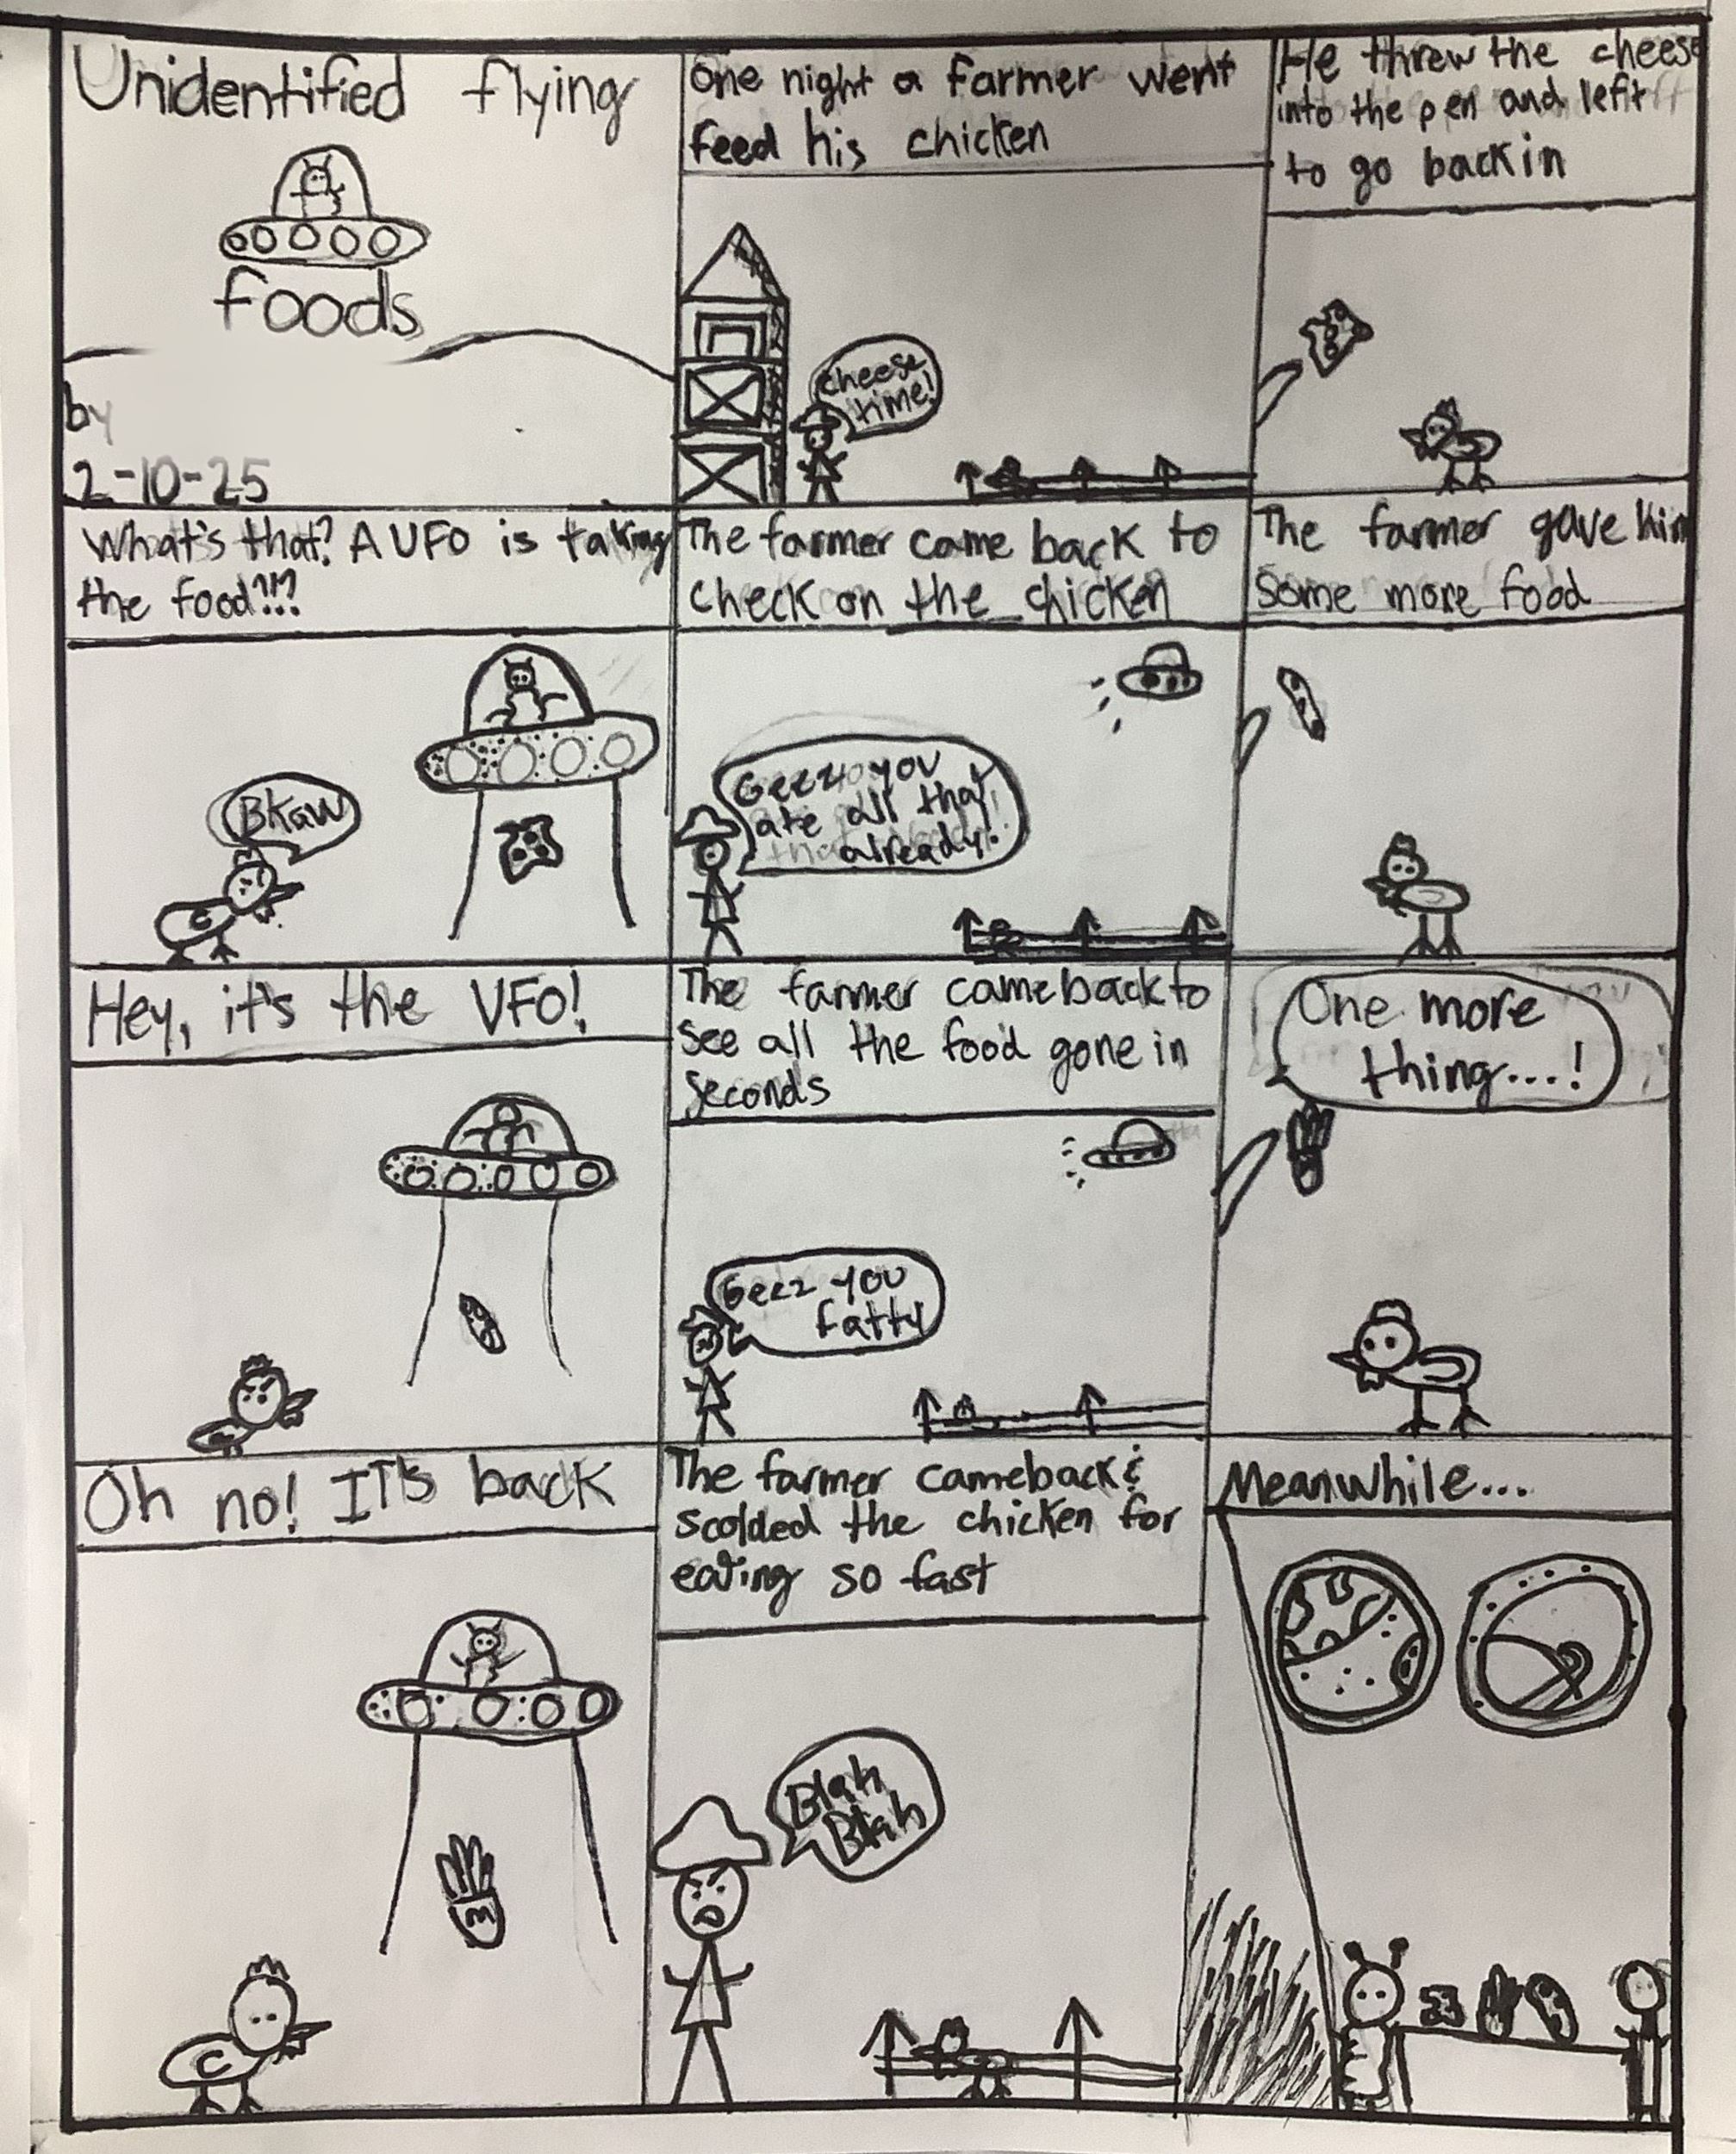 Unidentified flying
foods
by
2-10-25
One night a farmer went
feed his chicken
cheese
time!
He threw the cheese
into the pen and left
to go back in
What's that? A UFO is taking
the food?!?
BKaw
The farmer came back to
check on the chicken
Geez you
ate all that
already!
The farmer gave him
some more food
Hey, it's the UFO!
The farmer came back to
see all the food gone in
seconds
Geez you
fatty
One more
thing...!
Oh no! IT's back
M
C
The farmer came back &
scolded the chicken for
eating so fast
Blah
Blah
Meanwhile...